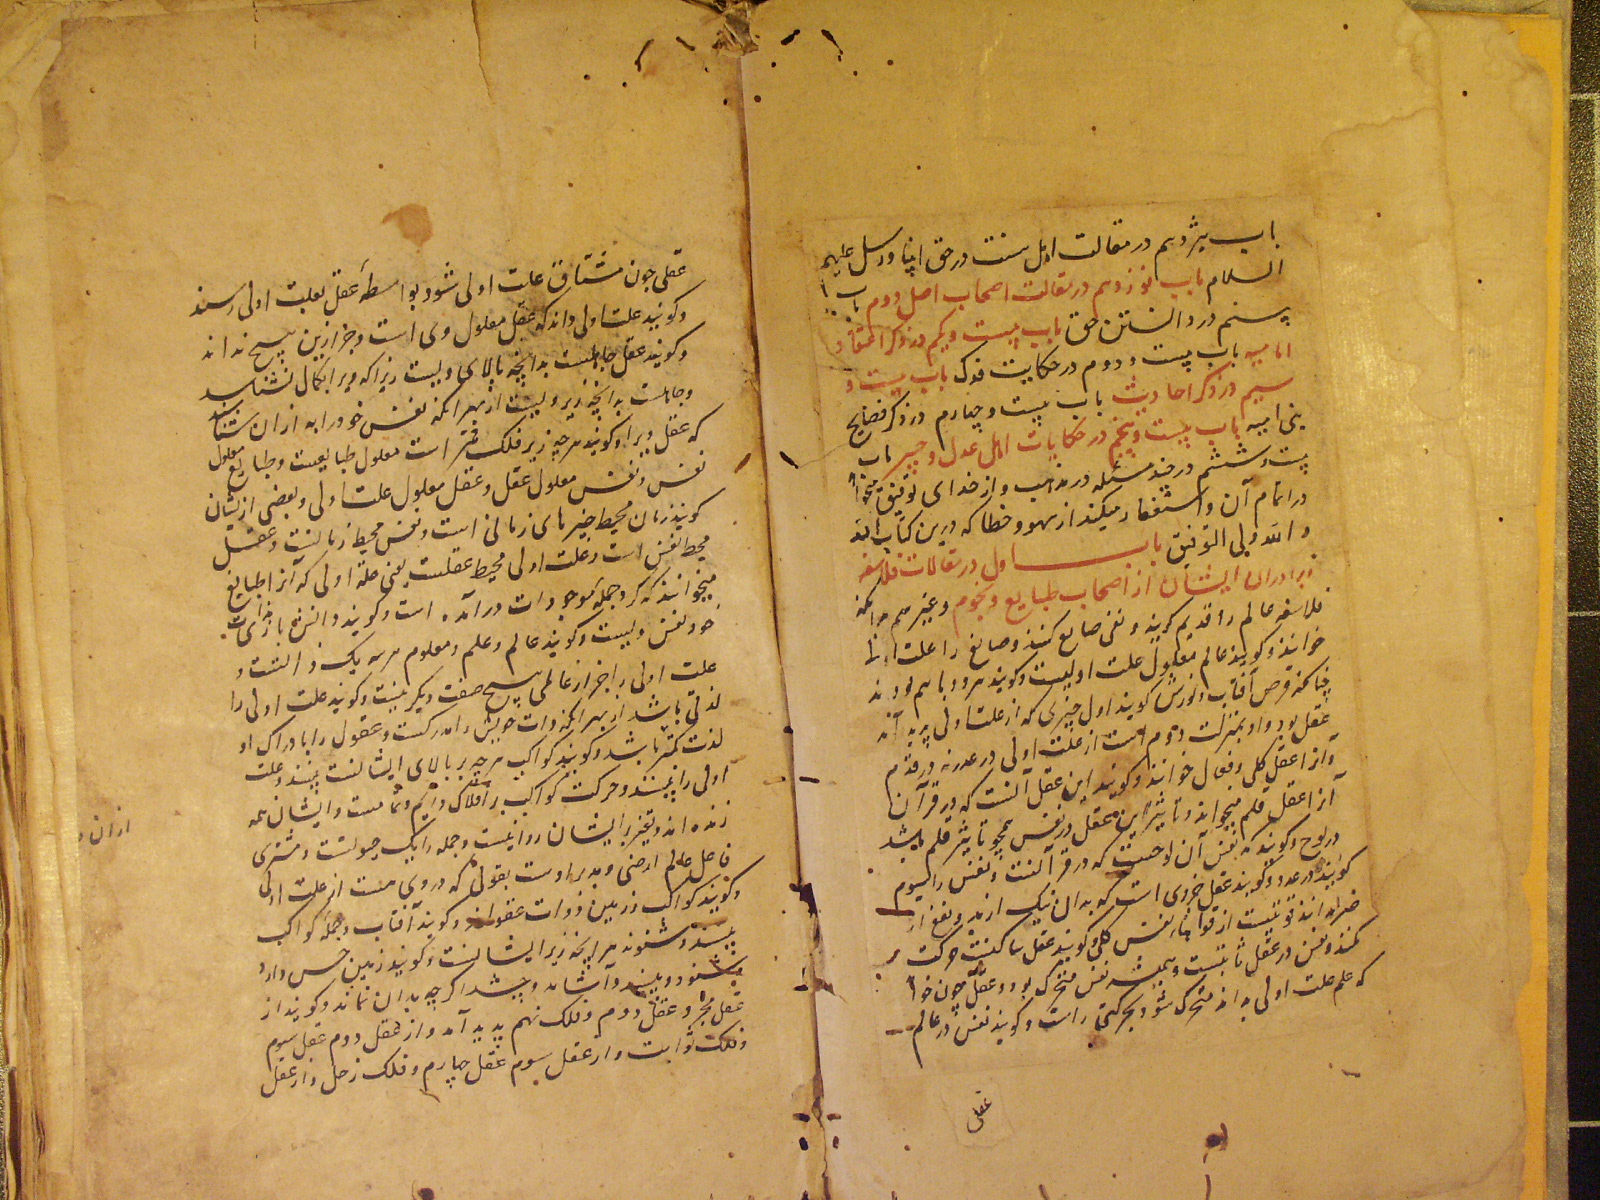 باب هژدهم در مقالت اهل سنت در حق انبیا و رسل علیهم
السلام باب نوزدهم در مقالت اصحاب اصل دوم باب
بیستم در دانستن حق باب بیست و یکم در ذکر اعتقاد
امامیه باب بیست و دوم در حکایت فدک باب بیست و
سیم در ذکر احادیث باب بیست و چهارم در ذکر فضایح
بنی امیه باب بیست و پنجم در حکایات اهل عدل و جبر باب
بیست و ششم در چند مسئله در مذهب و از خدای توفیق میخواهد
در اتمام آن و استغفار میکند از سهو و خطا که درین کتاب افتد
و الله ولی التوفیق باب اول در مقالات فلاسفه
و برادران ایشان از اصحاب طبایع و نجوم و غیرهم بدانکه
فلاسفه عالم را قدیم گویند و نفی صانع کنند و صانع را علت اولی
خوانند و گویند عالم معلول علت اولیست و گویند هر دو با هم بودند
چنانکه قرص آفتاب و نورش گویند اول چیزی که از علت اولی پدید آمد
عقل بود و او بمنزلت دوم است از علت اولی در عدد نه در قدم
و آنرا عقل کلی و فعال خوانند و گویند این عقل آنست که در قرآن
آنرا عقل قلم میخواند و تأثیر این عقل در نفس همچو تأثیر قلم باشد
در لوح و گویند که نفس آن لوحست که در قرآنست و نفس را سیوم
گویند در عدد و گویند عقل جزوی است که بدان نیک از بد و نفع از
ضر بدانند و قوتیست از قوتهاء نفس کلی و گویند عقل ساکنست حرکت
نکند و نفس در عقل ثابتست و همیشه نفس متحرک بود و عقل چون خواهد
که علم علت اولی بداند متحرک شود بحرکتی راست و گویند نفس در عالم
عقلی
عقلی چون مشتاق علت اولی شود بواسطه عقل بعلت اولی رسند
و گویند علت اولی داند که عقل معلول وی است و جز ازین هیچ نداند
و گویند عقل جاهلست بدانچه بالای ویست زیرا که ویرا بکمال نشناسد
و جاهلست بدانچه زیر ویست از بهر آنکه نفس خود را به از آن شناسد
که عقل ویرا و گویند هر چه زیر فلک قمر است معلول طبایعست و طبایع معلول
نفس و نفس معلول عقل و عقل معلول علت اولی و بعضی از ایشان
گویند زمان محیط چیزهای زمانی است و نفس محیط زمانست و عقل
محیط نفس است و علت اولی محیط عقلست یعنی علة اولی که آنرا طبایع
میخوانند که کرد جمله موجودات درآمده است و گویند دانش باری تعالی
خود نفس ویست و گویند عالم و علم و معلوم هر سه یک ذاتست و
علت اولی را جز از عالمی هیچ صفت دیگر نیست و گویند علت اولی را
لذتی باشد از بهر آنکه ذات خویش را مدرکست و عقول را با دراک او
لذت کمتر باشد و گویند کواکب هر چه بر بالای ایشانست بینند و علت
اولی را بینند و حرکت کواکب و افلاک دایم و تمامست و ایشان همه
زنده اند و تغیر بر ایشان روا نیست و جمله را یک صورتست و مشتری
فاعل عالم ارضی و مدبر اوست بقوتی که در وی هست از علت اولی
و گویند کواکب و زمین ذوات عقولند و گویند آفتاب و جمله کواکب
بینند و شنوند هر آنچه زیر ایشانست و گویند زمین حس دارد
و شنود و بیند و آشامد و چشد اگر چه بدان نماند و گویند از
عقل مجرد عقل دوم و فلک نهم پدید آمد و از عقل دوم عقل سوم
و فلک ثوابت و از عقل سوم عقل چهارم و فلک زحل و از عقل